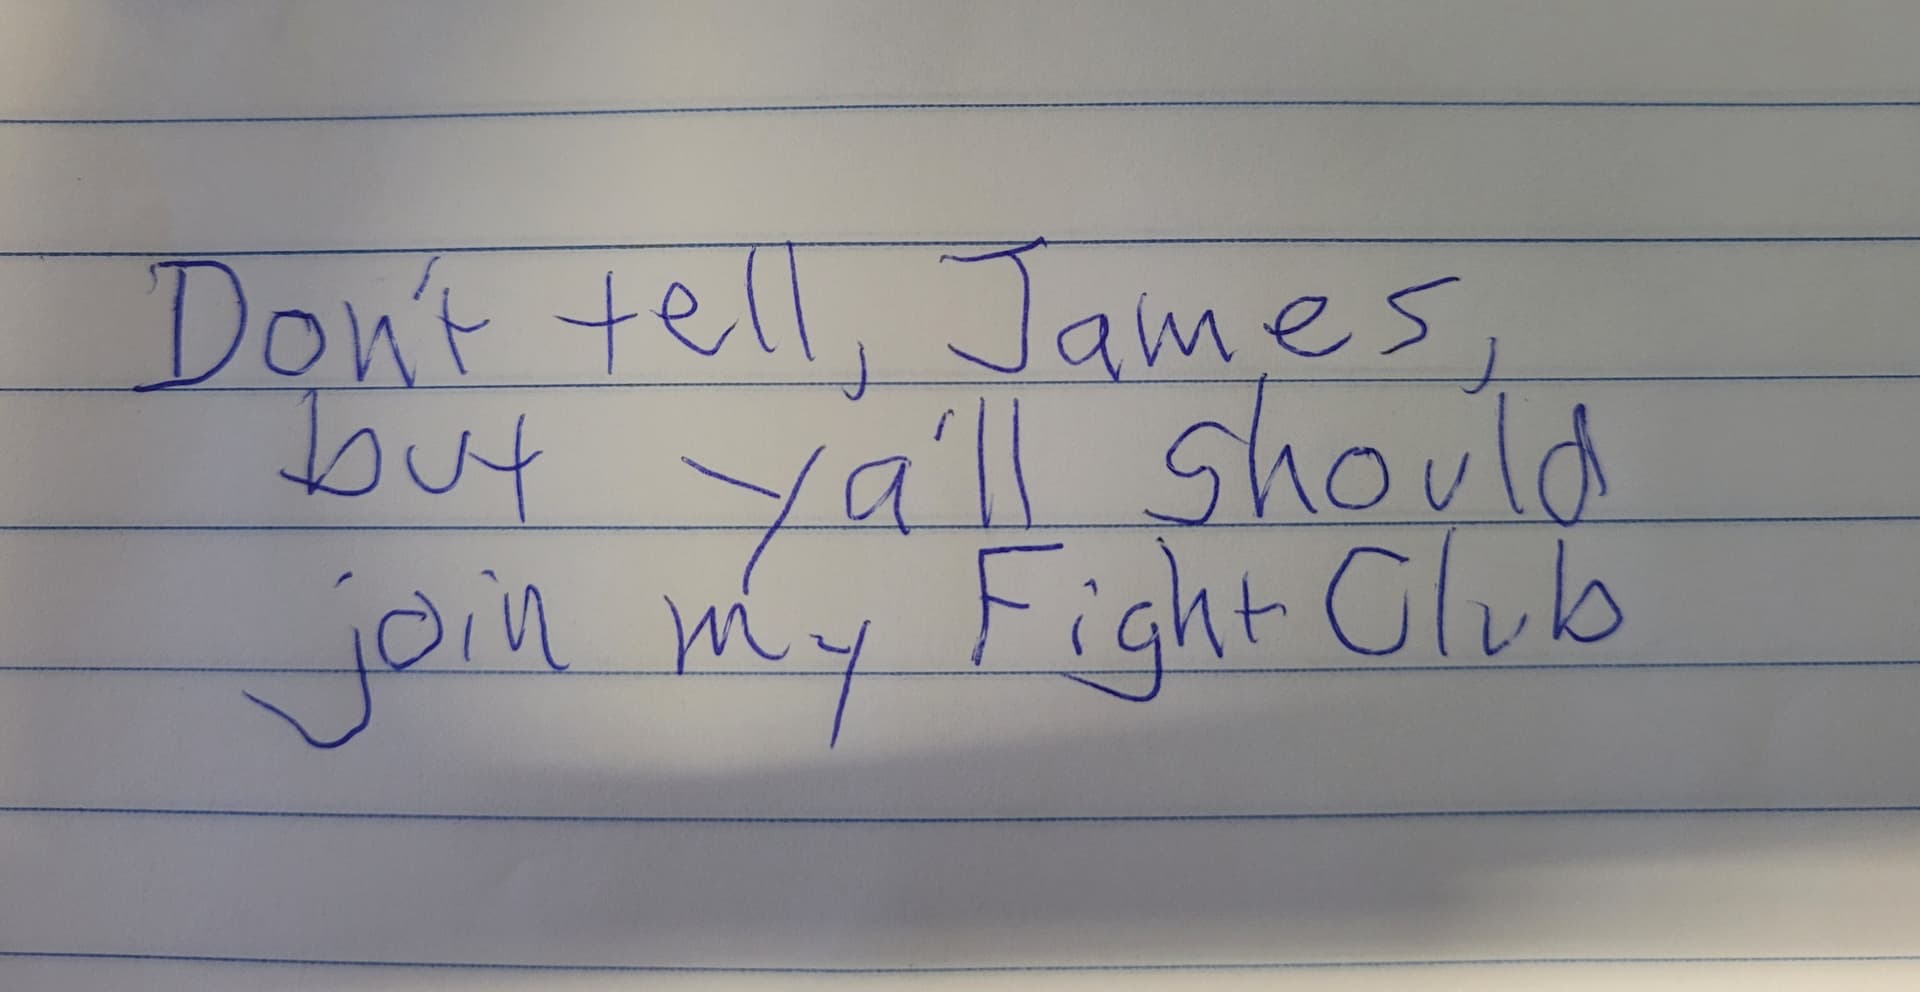 Don't tell, James,
but ya'll should
join my Fight Club